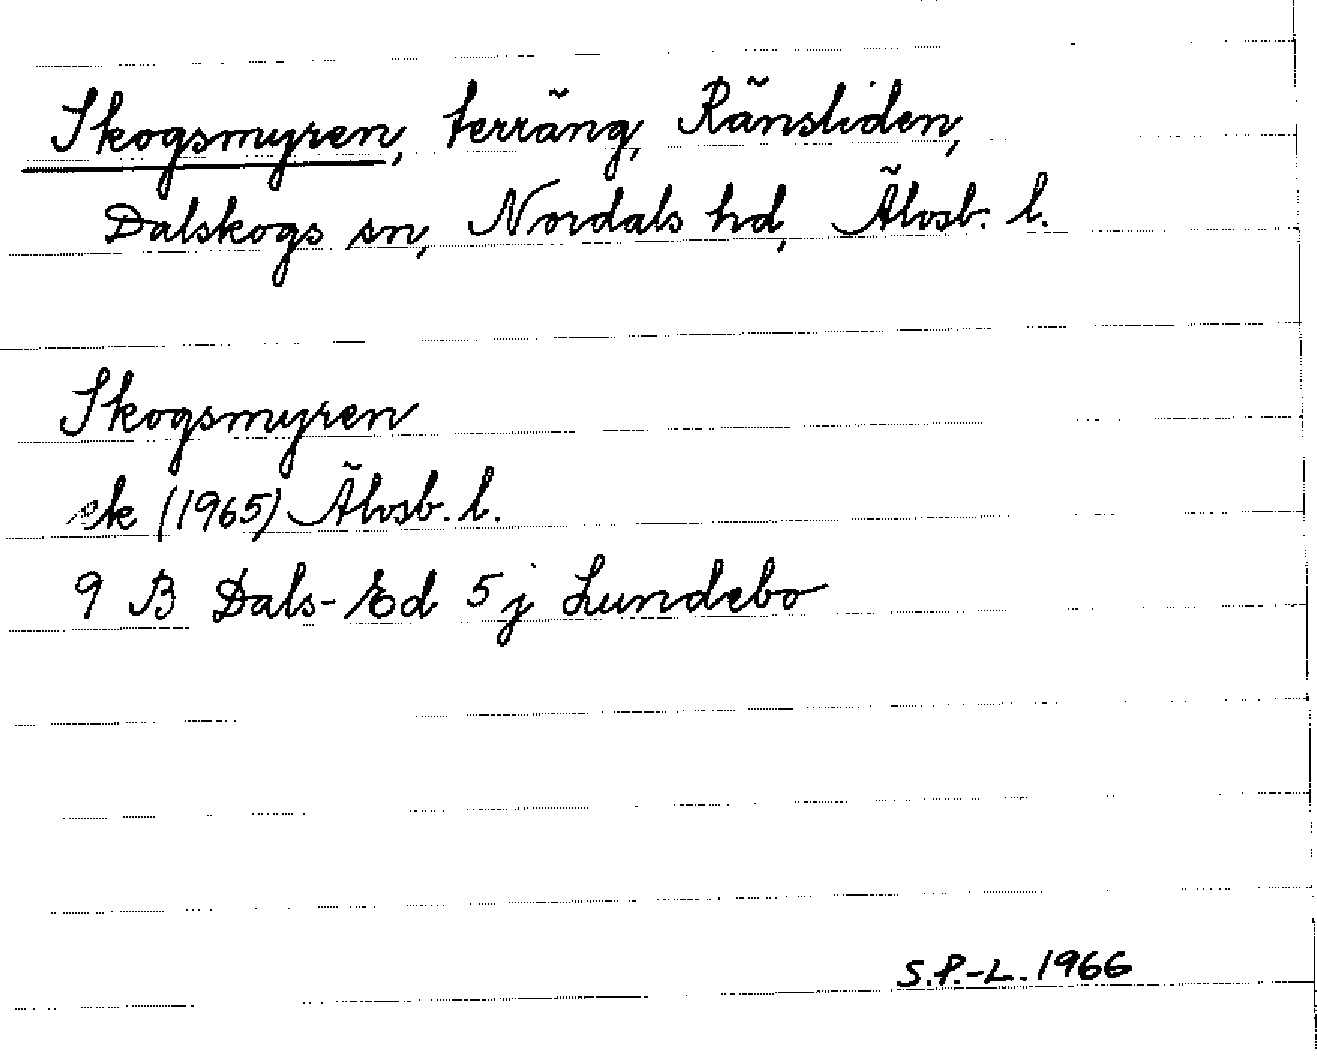 Skogsmyren, terräng, Ränsliden,
Dalskogs sn, Nordals hd, Älvsb. l.
Skogsmyren
ek (1965) Älvsb. l.
9 B Dals-Ed 5 j Lundebo
S.P.-L. 1966